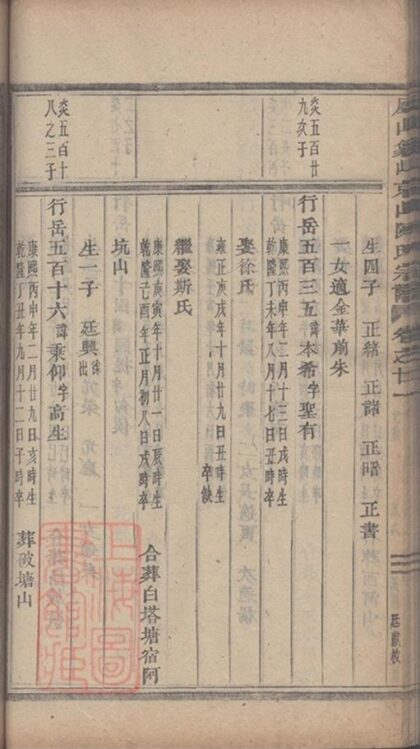 陳氏宗譜 卷之廿一
廷獻校
生四子 正緒 正諸 正昭 正書
一女適金華前朱
炎五百廿九亥子
行岳五百三五 諱本希 字聖有
康熙丙申年三月十三日戌時生
乾隆丁未年八月十日戌時卒
娶徐氏
雍正庚戌年十月廿九日丑時生
卒缺
繼娶斯氏
康熙庚寅年十月廿一日辰時生
乾隆己酉年正月初八日戌時卒
合葬白塔塘宿阿
坑山
生一子 廷興 徐出
炎五百十八之三子
行岳五百十六 諱秉仰 字高生
康熙丙申年二月廿九日亥時生
乾隆丁丑年九月十二日子時卒
葬破塘山